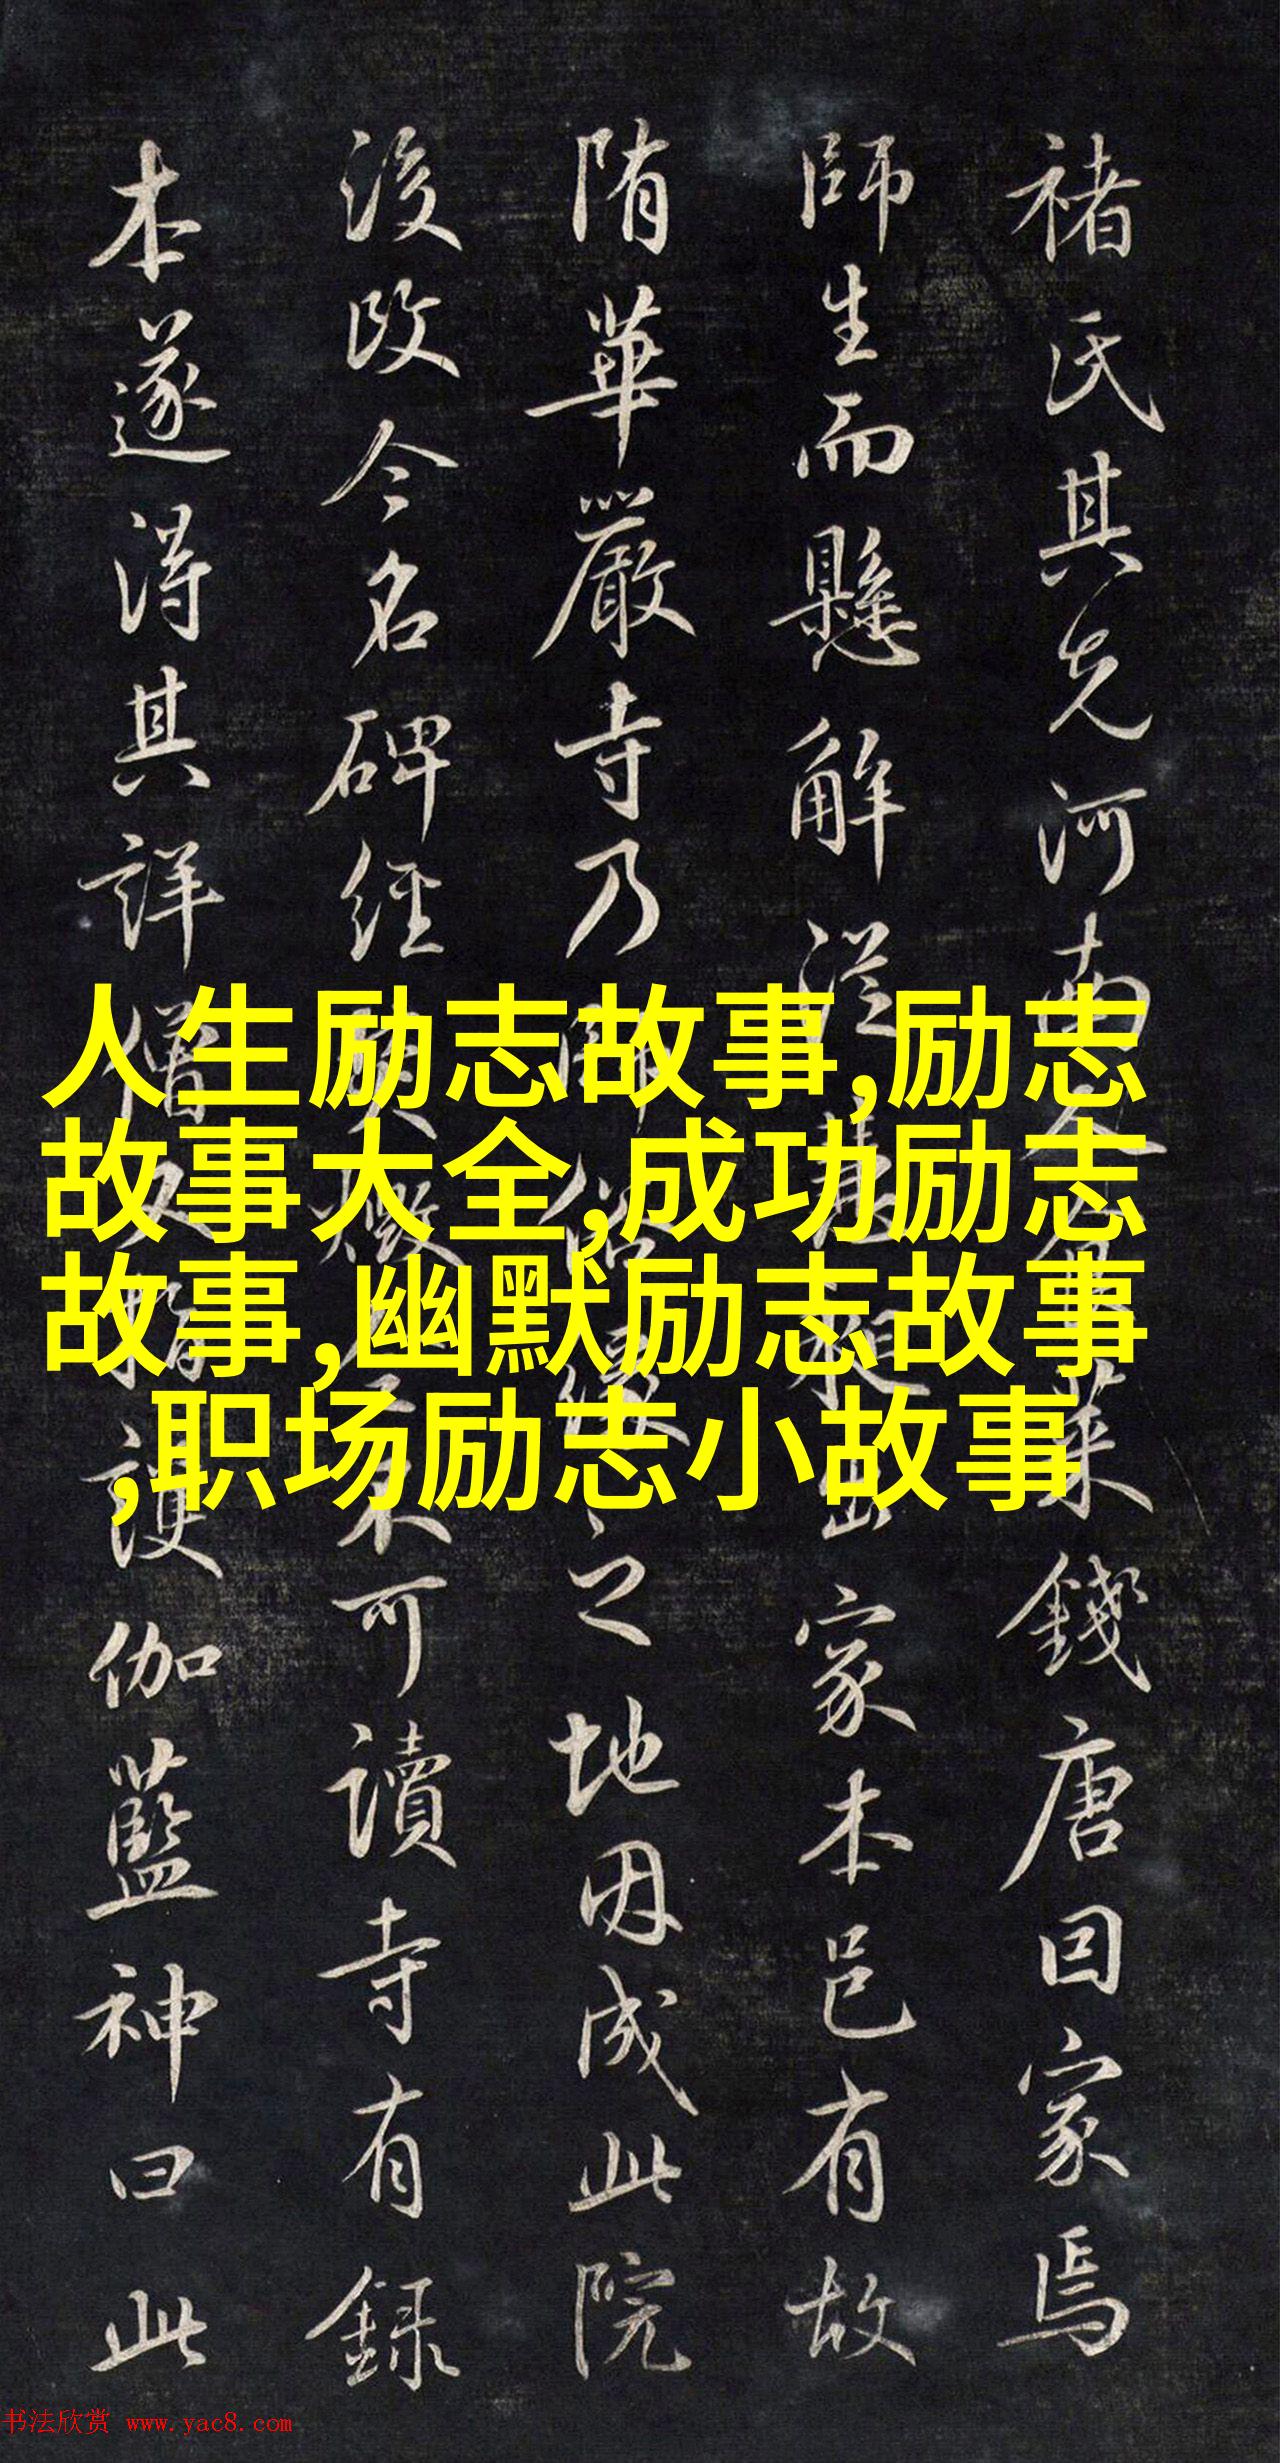 褚氏其先河南
錢唐因家焉
師生而懸解
家本邑有故
隋華嚴寺乃
之地因成此院
後改今名碑經
可讀寺有録
本遂得其詳
伽藍神曰此
人生励志故事,励志
故事大全,成功励志
故事,幽默励志故事
,职场励志小故事
书法欣赏 www.yac8.com